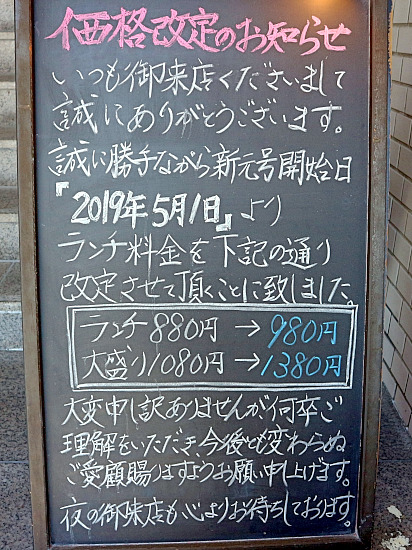 価格改定のお知らせ
いつも御来店くださいまして
誠にありがとうございます。
誠に勝手ながら新元号開始日
『2019年5月1日』より
ランチ料金を下記の通り
改定させて頂くことに致しました。
ランチ880円→980円
大盛り1080円→1380円
大変申し訳ありませんが何卒ご
理解をいただき、今後とも変わらぬ
ご愛顧賜りますようお願い申し上げます。
夜の御来店も心よりお待ちしております。